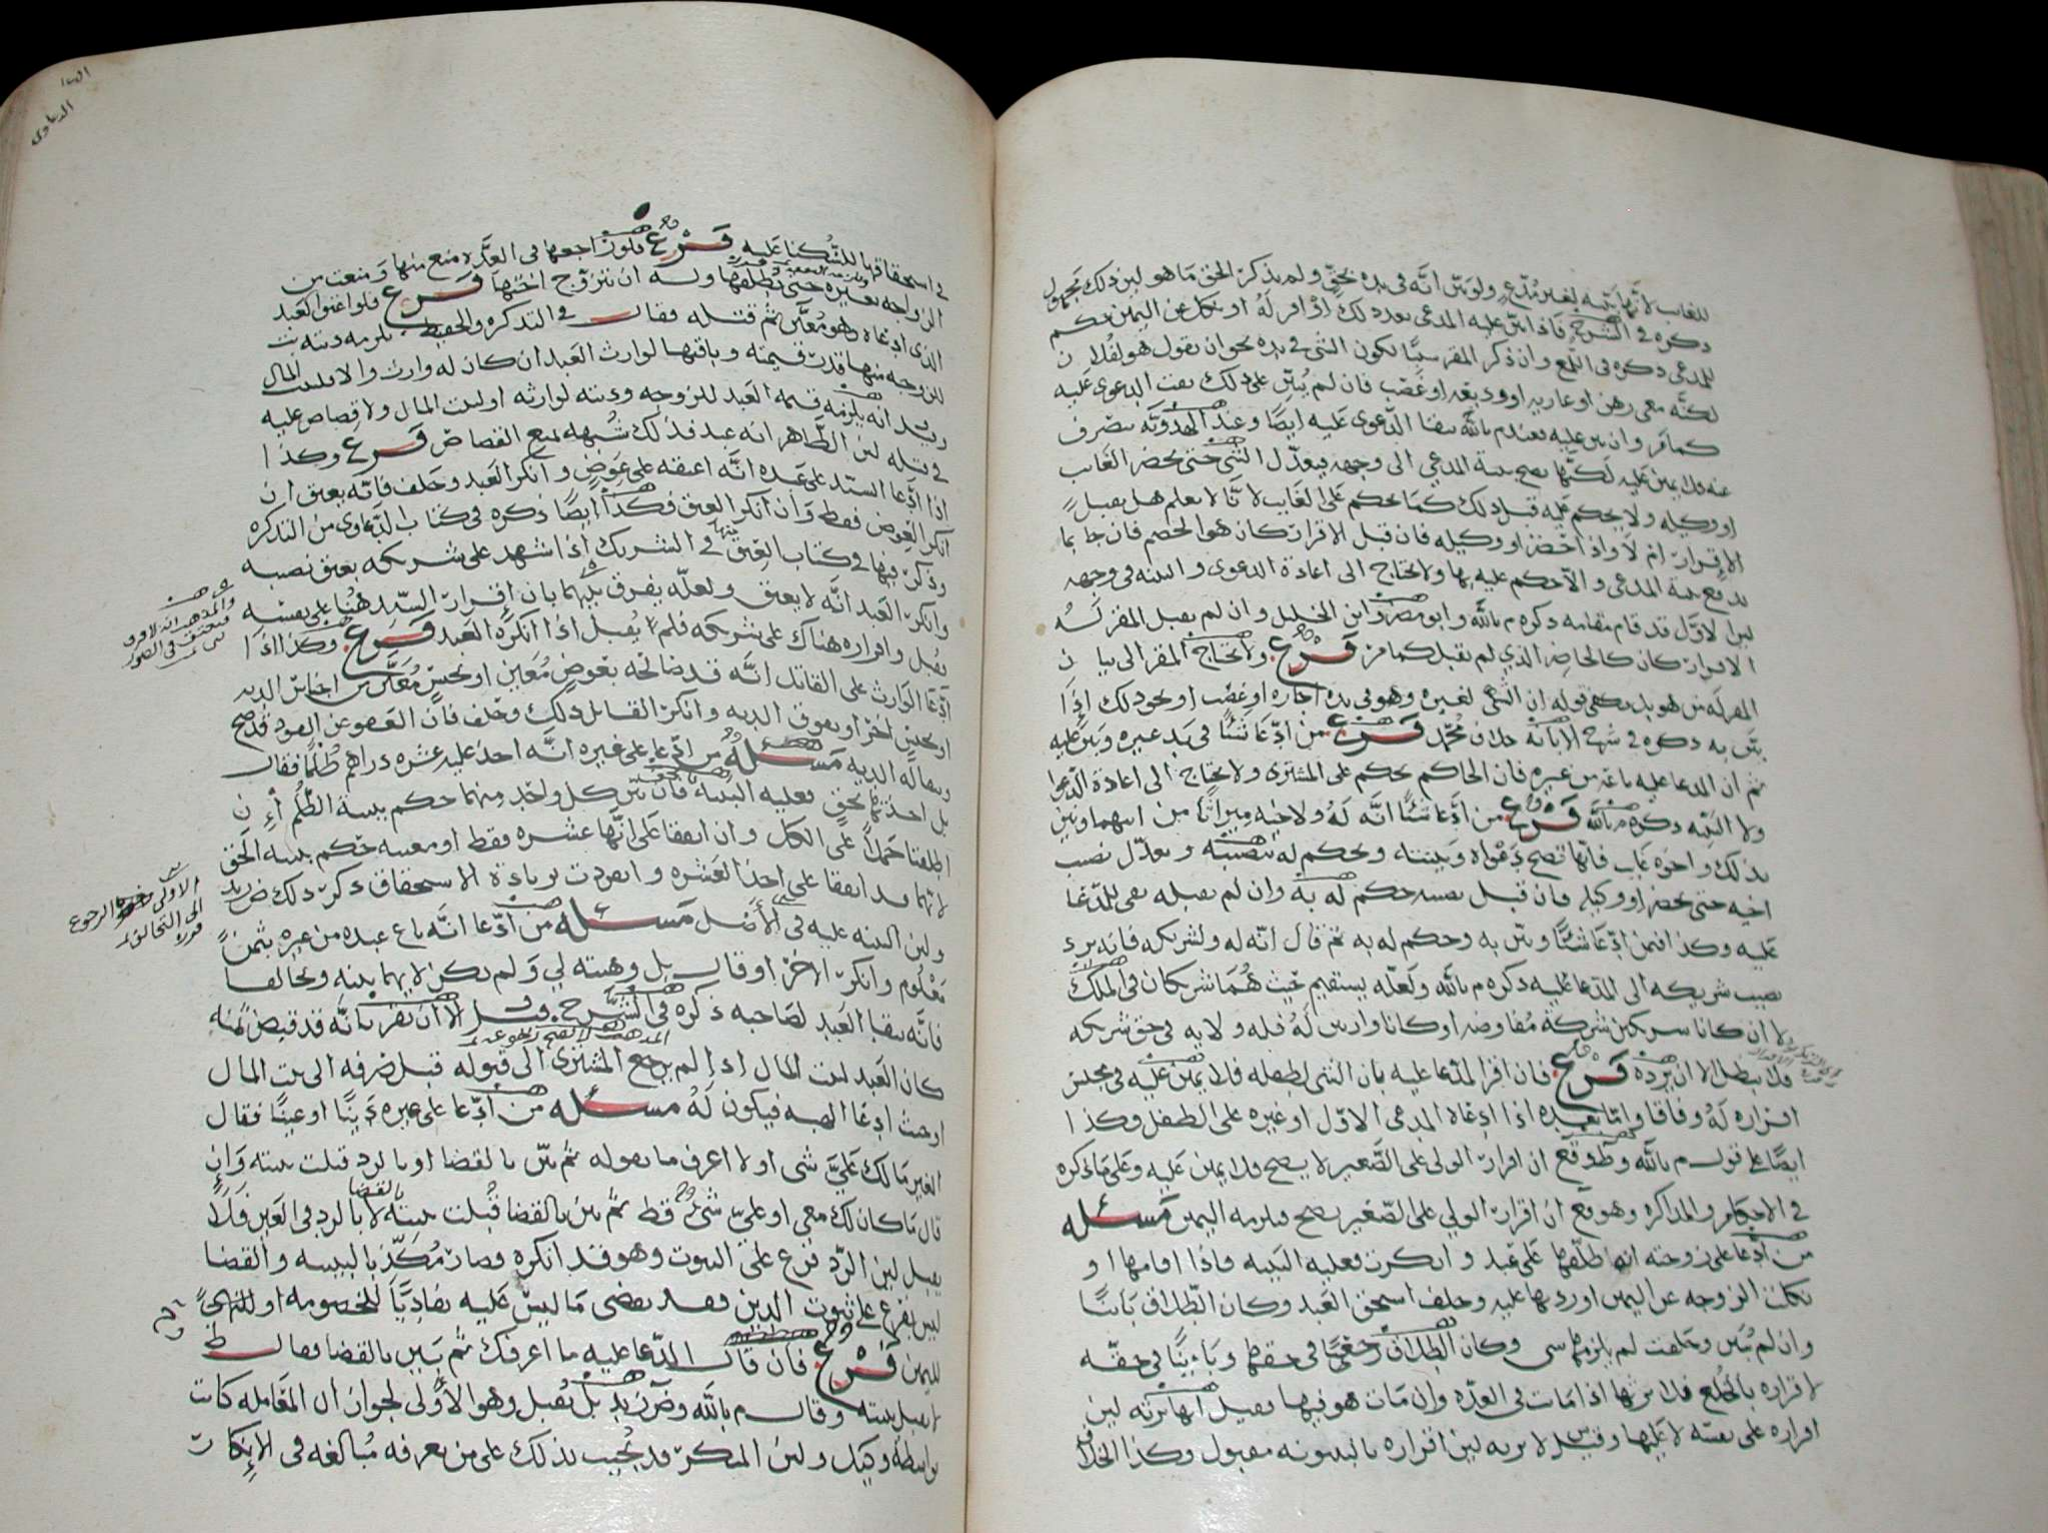 للغايب لانها بينه لغير مدع ولو بين انه في يده بحق ولم يذكر الحق ما هو لين ذلك مجهول
ذكره في الشرح فاذا بين عليه المدعي بعد ذلك او اقر له او نكل عن اليمين حكم
للمدعي ذكره في اللمع وان ذكر المقر سببا لكون الشي في يده نحو ان يقول هو لفلان
لكنه معي رهن او عاريه او وديعه او غصب فان لم يبين على ذلك بقت الدعوى عليه
كما مر وان بين عليه فعند م بالله تبقا الدعوى عليه ايضا وعند الهدويه تصرف
عنه ولا يمين عليه لكنها تصح بينة المدعي الى وجهه فيعدل الشي حتى يحضر الغايب
او وكيله ولا يحكم عليه قبل ذلك كما يحكم على الغايب لانا لا نعلم هل يقبل
الاقرار ام لا واذا احضر او وكيله فان قبل الاقرار كان هو الخصم فان جا بما
يدفع بينة المدعي والا حكم عليه بها ولا يحتاج الى اعادة الدعوى والبينه في وجهه
لين الاول قد قام مقامه ذكره م بالله وابو مضر وابن الخليل وان لم يقبل المقر له
الاقرار كان كالحاضر الذي لم يقبل كما مر فرع ولا يحتاج المقر الى بيان
المقر له من هو بل يكفي قوله ان الشي لغيره وهو في يده اجاره او غصب او نحو ذلك اذا
بين به ذكره في شرح الابانه خلاف محمد فرع من ادعا شيئا في يد غيره وبين عليه
ثم ان المدعا عليه باعه من غيره فان الحاكم يحكم على المشتري ولا يحتاج الى اعادة الدعوا
ولا البينه ذكره م بالله فرع من ادعا شيئا انه له ولاخيه ميراثا من ابيهما وبين
بذلك واخوه غايب فانها تصح دعواه وبينته ويحكم له بنصيبه ويعدل نصيب
اخيه حتى يحضر او وكيله فان قبل نفسه حكم له به وان لم يقبله بقي للمدعا
عليه وكذا فيمن ادعا شيئا وبين به وحكم له به ثم قال انه له ولشريكه فانه يرد
نصيب شريكه الى المدعا عليه ذكره م بالله ولعله يستقيم حيث هما شريكان في الملك
لا ان كانا شريكين شركة مفاوضه او كانا وارثين له فله ولايه في حق شريكه
فلا يبطل الا ان يرده فرع فان اقر المدعا عليه بان الشي لطفله فلا يمين عليه في مجلس
اقراره له وفاقا واما بعده اذا ادعاه المدعي الاول او غيره على الطفل وكذا
ايضا على قول م بالله وط وقع ان اقرار الولي على الصغير لا يصح فلا يمين عليه وعلى ما ذكره
في الاحكام والمذاكره وهو قع ان اقرار الولي على الصغير يصح فيلزمه اليمين مسئله
من ادعا على زوجته انه طلقها على عبد وانكرت فعليه البينه فاذا اقامها او
نكلت الزوجه عن اليمين او ردتها عليه وحلف استحق العبد وكان الطلاق باينا
وان لم يبين وحلفت لم يلزمها شي وكان الطلاق رجعيا في حقها وباينا في حقه
لاقراره بالخلع فلا يرثها اذا ماتت في العده وان مات هو فيها فقيل انها ترثه لين
اقراره على نفسه لا عليها وقيل س لا ترثه لين اقراره بالبينونه مقبول وكذا الخلاف
الدعاوى
في استحقاقها للسكنا عليه فرع فلو راجعها في العده لا منع منها ومنعت من
الزواجه بغيره حتى يطلقها وليس له ان يتزوج اختها فرع فلو اعتق العبد
الذي ادعاه وهو معين ثم قتله فقال في التذكره والحفيظ تلزمه ديته
للزوجه منها قدر قيمته وباقيها لوارث العبد ان كان له وارث والا فلبيت المال
وقيل انه يلزمه قيمه العبد للزوجه وديته لوارثه او لبيت المال ولا قصاص عليه
في قتله لين الظاهر انه عبد فذلك شبهه تمنع القصاص فرع وكذا
اذا ادعا السيد على عبده انه اعتقه على عوض وانكر العبد وحلف فانه يعتق ان
انكر العوض فقط وان انكر العتق فكذا ايضا ذكره في كتاب الدعاوى من التذكره
وذكر فيها في كتاب العتق في الشريك اذا شهد على شريكه بعتق نصيبه
وانكر العبد انه لا يعتق ولعله يفرق بينهما بان اقرار السيد هنا على نفسه
يقبل واقراره هناك على شريكه فلم يقبل اذا انكره العبد فرع وكذا اذا
ادعا الوارث على القاتل انه قد صالحه بعوض معين او بجنس معين من اجناس الديه
او بجنس اخر او بفوق الديه وانكر القاتل ذلك وحلف فان العفو عن القود قد صح
ويبقا له الديه مسئله من ادعا على غيره انه اخذ عليه عشره دراهم ظلما فقال
بل اخذتها بحق فعليه البينه فان بين كل واحد منهما حكم ببينة الظلم ان
اطلقتا حملا على الكل وان اتفقا على انها عشره فقط او معينه حكم ببينه الحق
لانهما قد اتفقا على اخذ العشره وانفردت بزيادة الاستحقاق ذكر ذلك ض زيد
ولين البينه عليه في الاصل مسئله من ادعا انه باع عبده من غيره بثمن
معلوم وانكر الاخر او قال بل وهبته لي ولم يكن لايهما بينه وتحالفا
فانه يبقا العبد لصاحبه ذكره في الشرح وقيل الا ان يقر بانه قد قبض ثمنه
كان العبد لبيت المال اذا لم يرجع المشتري الى قبوله قبل صرفه الى بيت المال
او حيث ادعا الهبه فيكون له مسئله من ادعا على غيره دينا او عينا فقال
الغير ما لك علي شي او لا اعرف ما يقوله ثم بين بالقضا او بالرد قبلت بينته وان
قال ما كان لك معي او علي شي قط ثم بين بالقضا قبلت بينته لا بالرد في العين فلا
يقبل لين الرد فرع على الثبوت وهو قد انكره فصار مكذبا للبينه والقضا
ليس بفرع على ثبوت الدين فقد يقضي ما ليس عليه تفاديا للخصومه او للتهمه
لليمين فرع فان قال المدعا عليه ما اعرفك ثم بين بالقضا فقال ط
لا يقبل بينته وقال م بالله وض زيد بل يقبل وهو الاولى لجواز ان المعامله كانت
بواسطه وكيل ولين المنكر قد يجيب بذلك على من يعرفه مبالغه في الانكار
والمذهب انه لا فرق
فيعتق في الصورتين
الاولى الرجوع
الى التحالف
المذهب لا يصح رجوعه